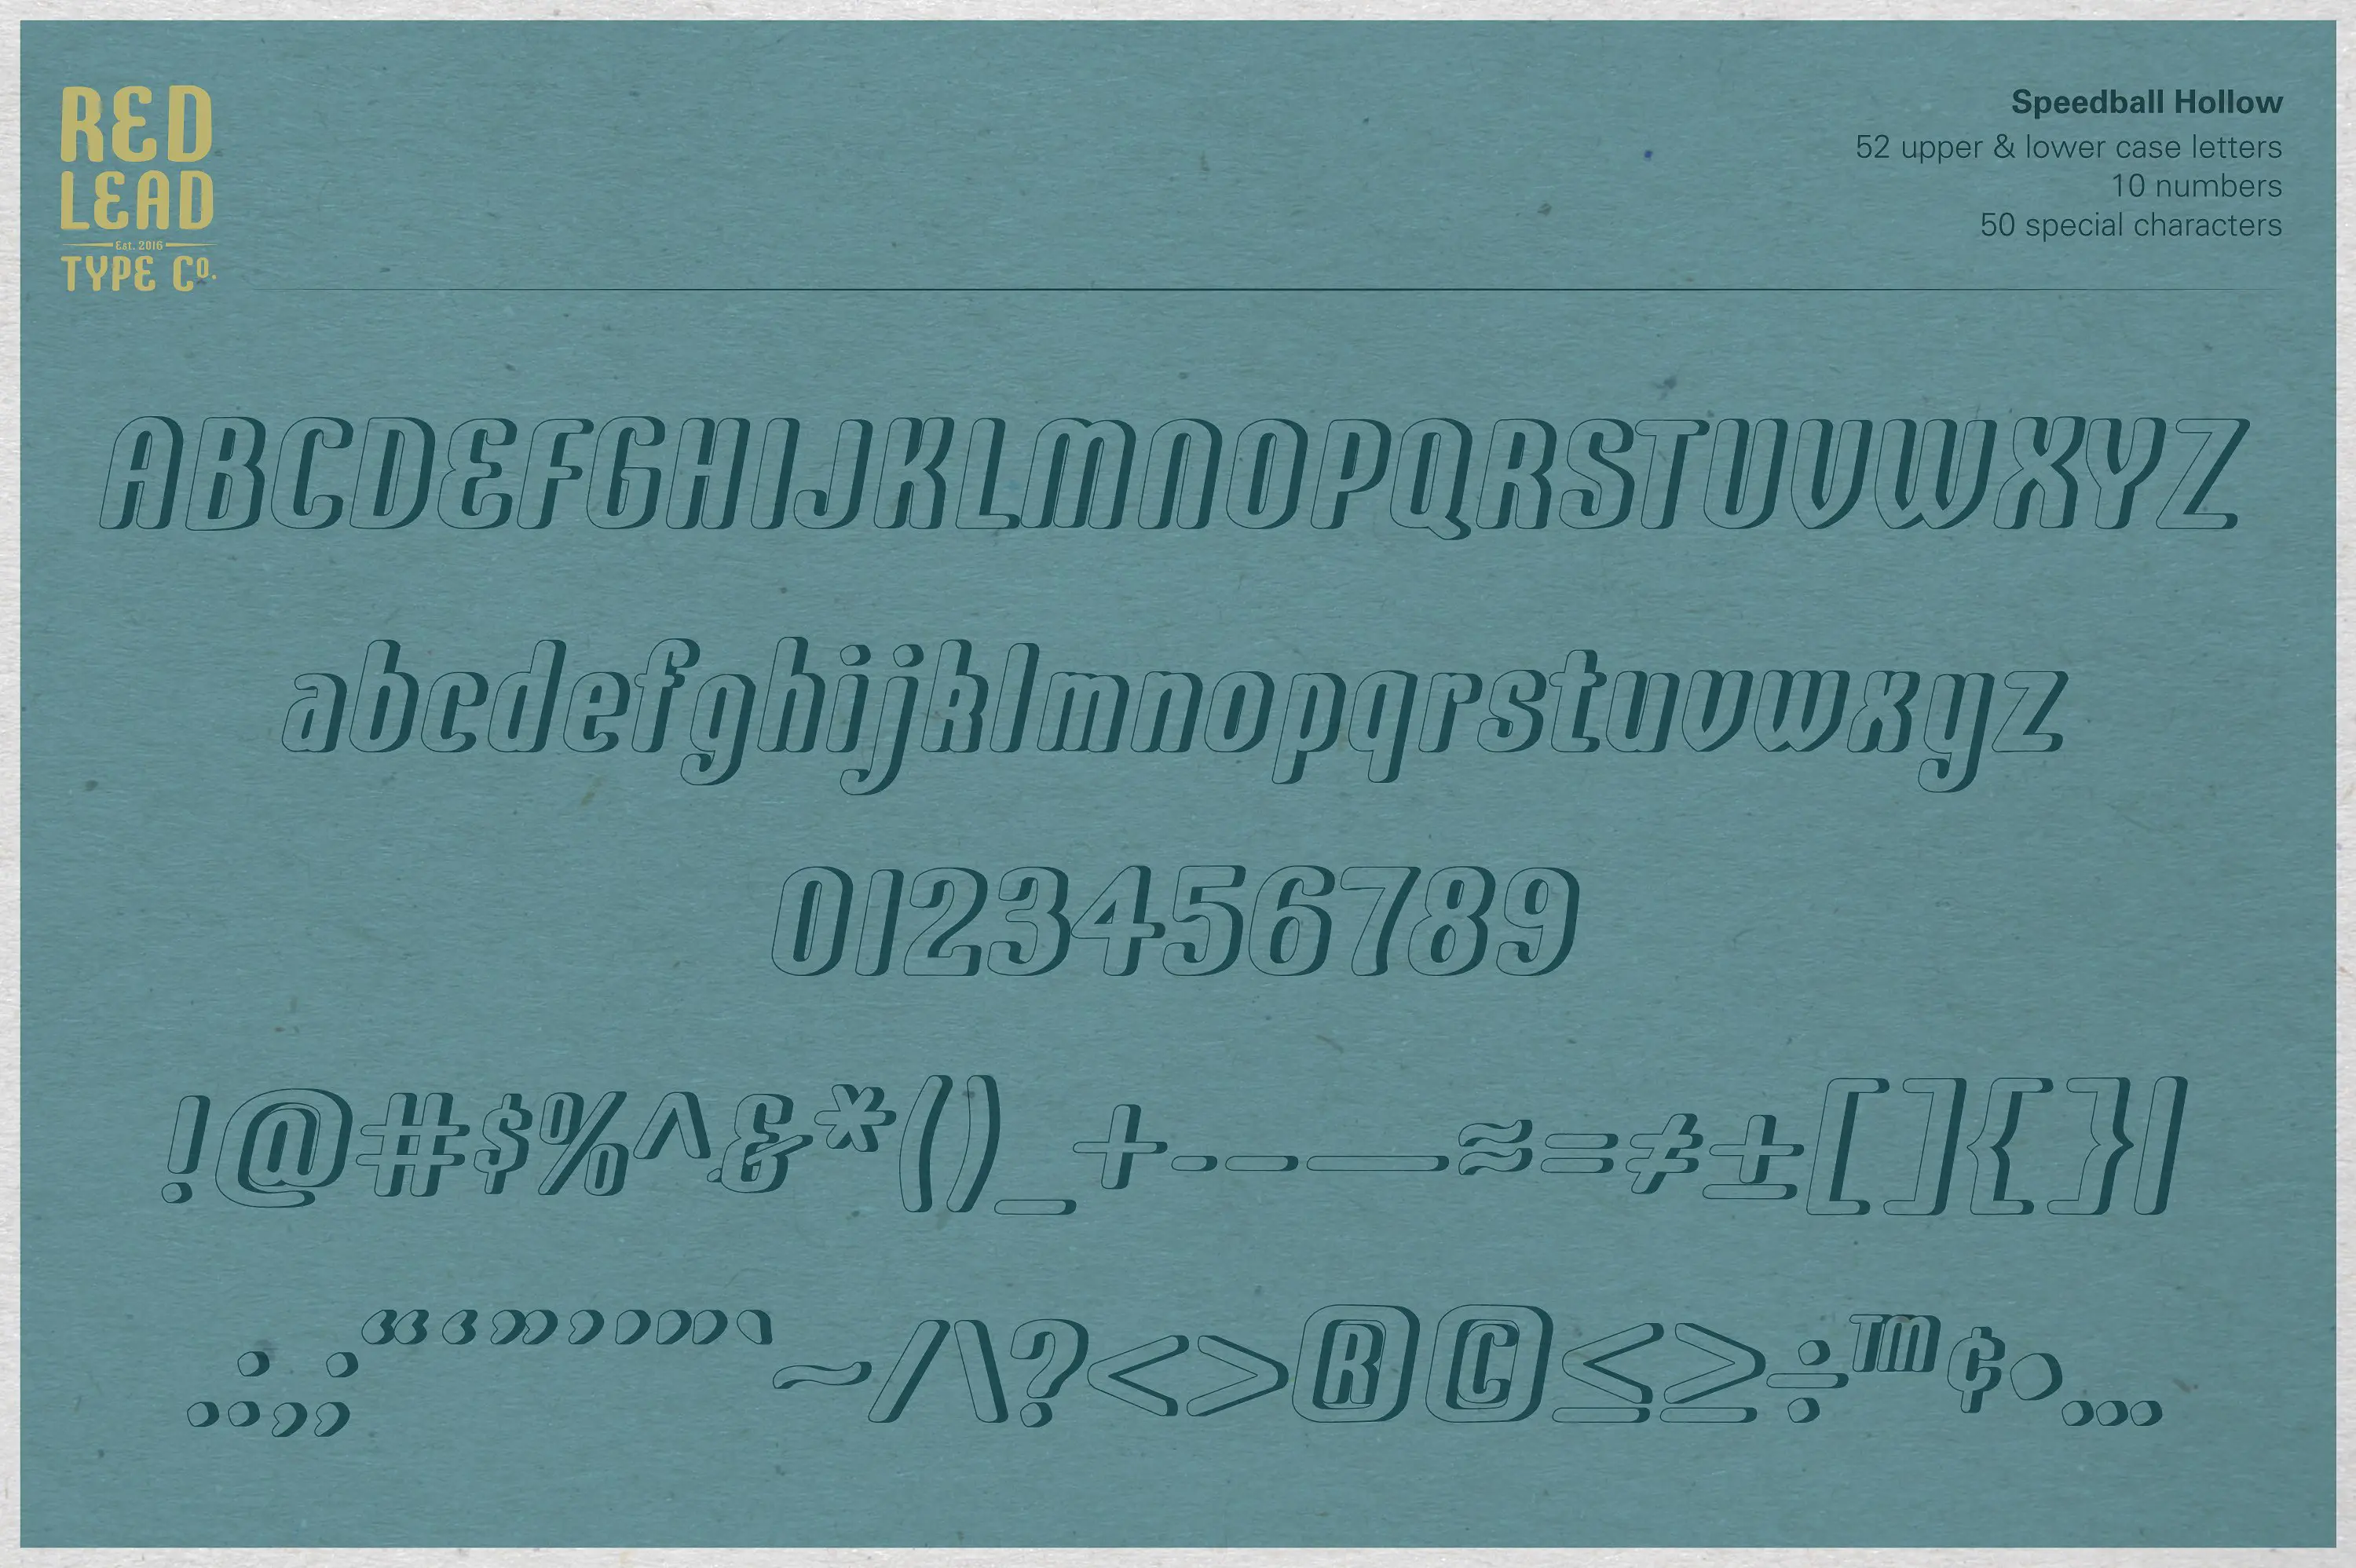 RED
LEAD
Est. 2016
TYPE Co.
Speedball Hollow
52 upper & lower case letters
10 numbers
50 special characters
ABCDEFGHIJKLMNOPQRSTUVWXYZ
abcdefghijklmnopqrstuvwxyz
0123456789
!@#$%^&*()_+-–—≈=≠±[]{}|
.:,;“‘”’"'`~/\?<>®©≤≥÷™¢•…